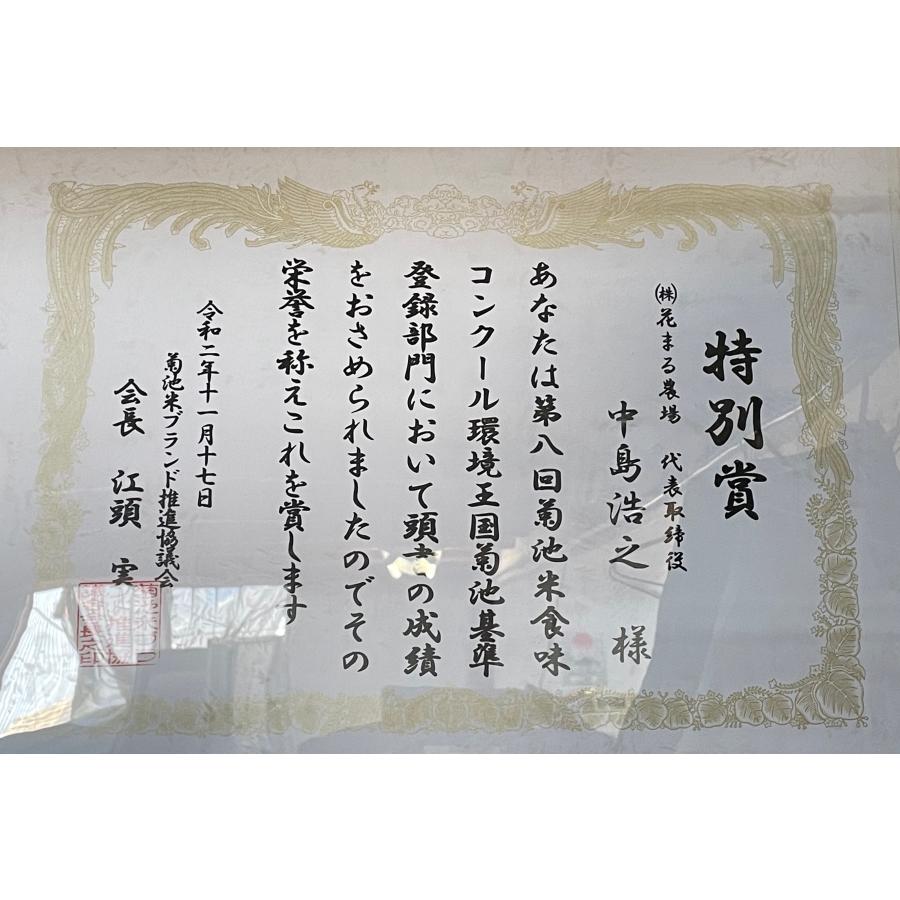 特別賞
㈱花まる農場 代表取締役
中島浩之 様
あなたは第八回菊池米食味
コンクール環境王国菊池基準
登録部門において頭書の成績
をおさめられましたのでその
栄誉を称えこれを賞します
令和二年十一月十七日
菊池米ブランド推進協議会
会長 江頭 実